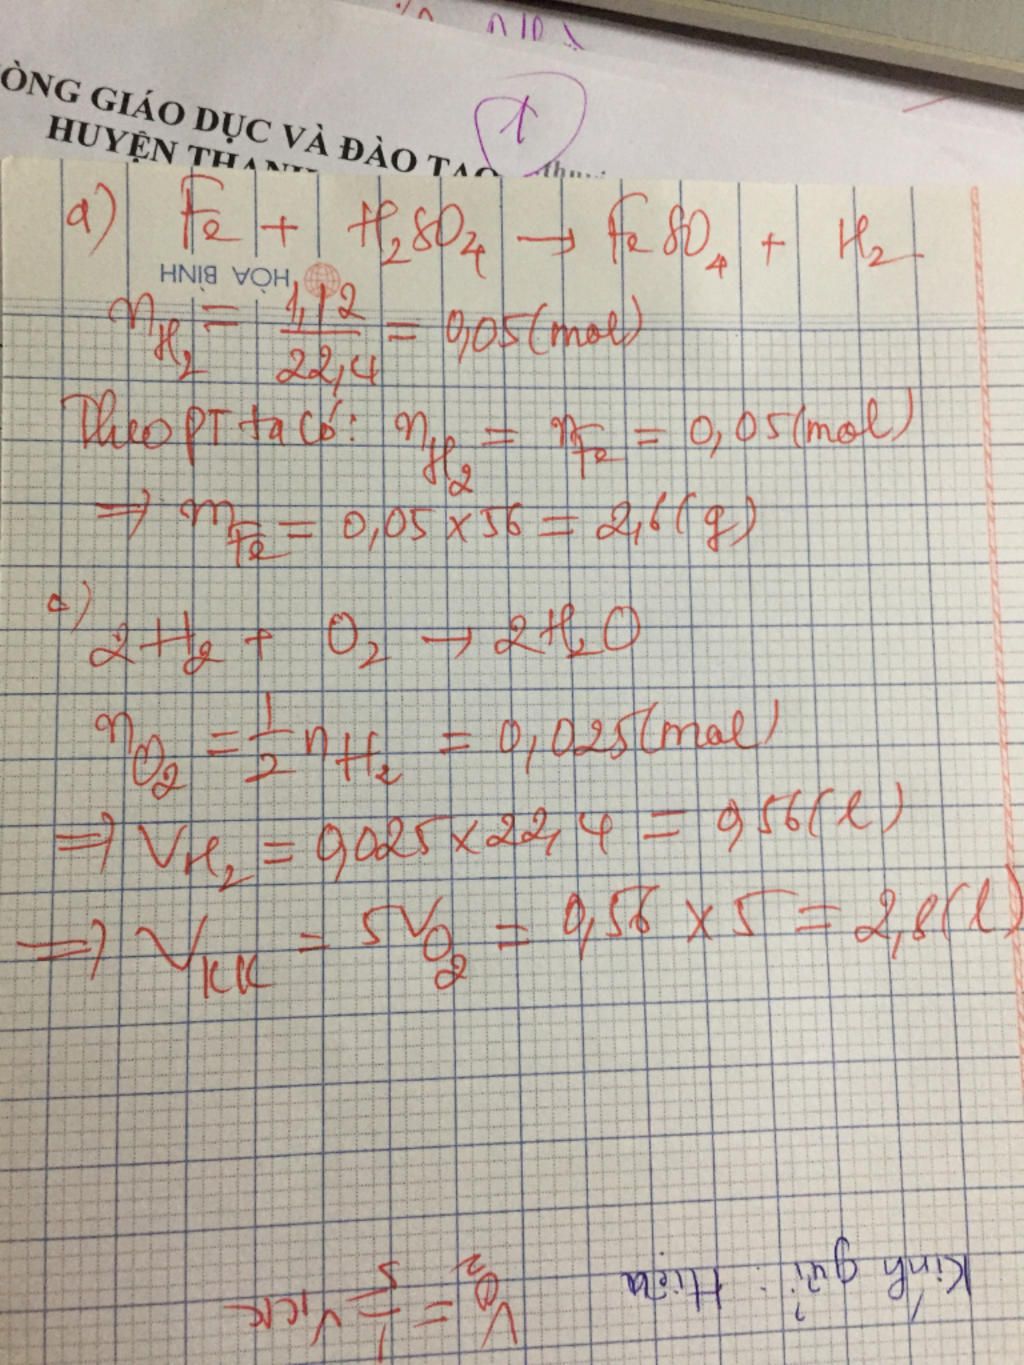 ÒNG GIÁO DỤC VÀ ĐÀO TẠO
HUYỆN THANH
a) Fe + H₂SO₄ → FeSO₄ + H₂
HÒA BÌNH
n_H₂ = 1,12/22,4 = 0,05 (mol)
Theo PT ta có: n_H₂ = n_Fe = 0,05 (mol)
⇒ m_Fe = 0,05 × 56 = 2,6 (g)
2H₂ + O₂ → 2H₂O
n_O₂ = 1/2 n_H₂ = 0,025 (mol)
⇒ V_H₂ = 0,025 × 22,4 = 0,56 (l)
⇒ V_KK = 5V_O₂ = 0,56 × 5 = 2,8 (l)
Kính gửi:
V_O₂ = 1/5 V_KK